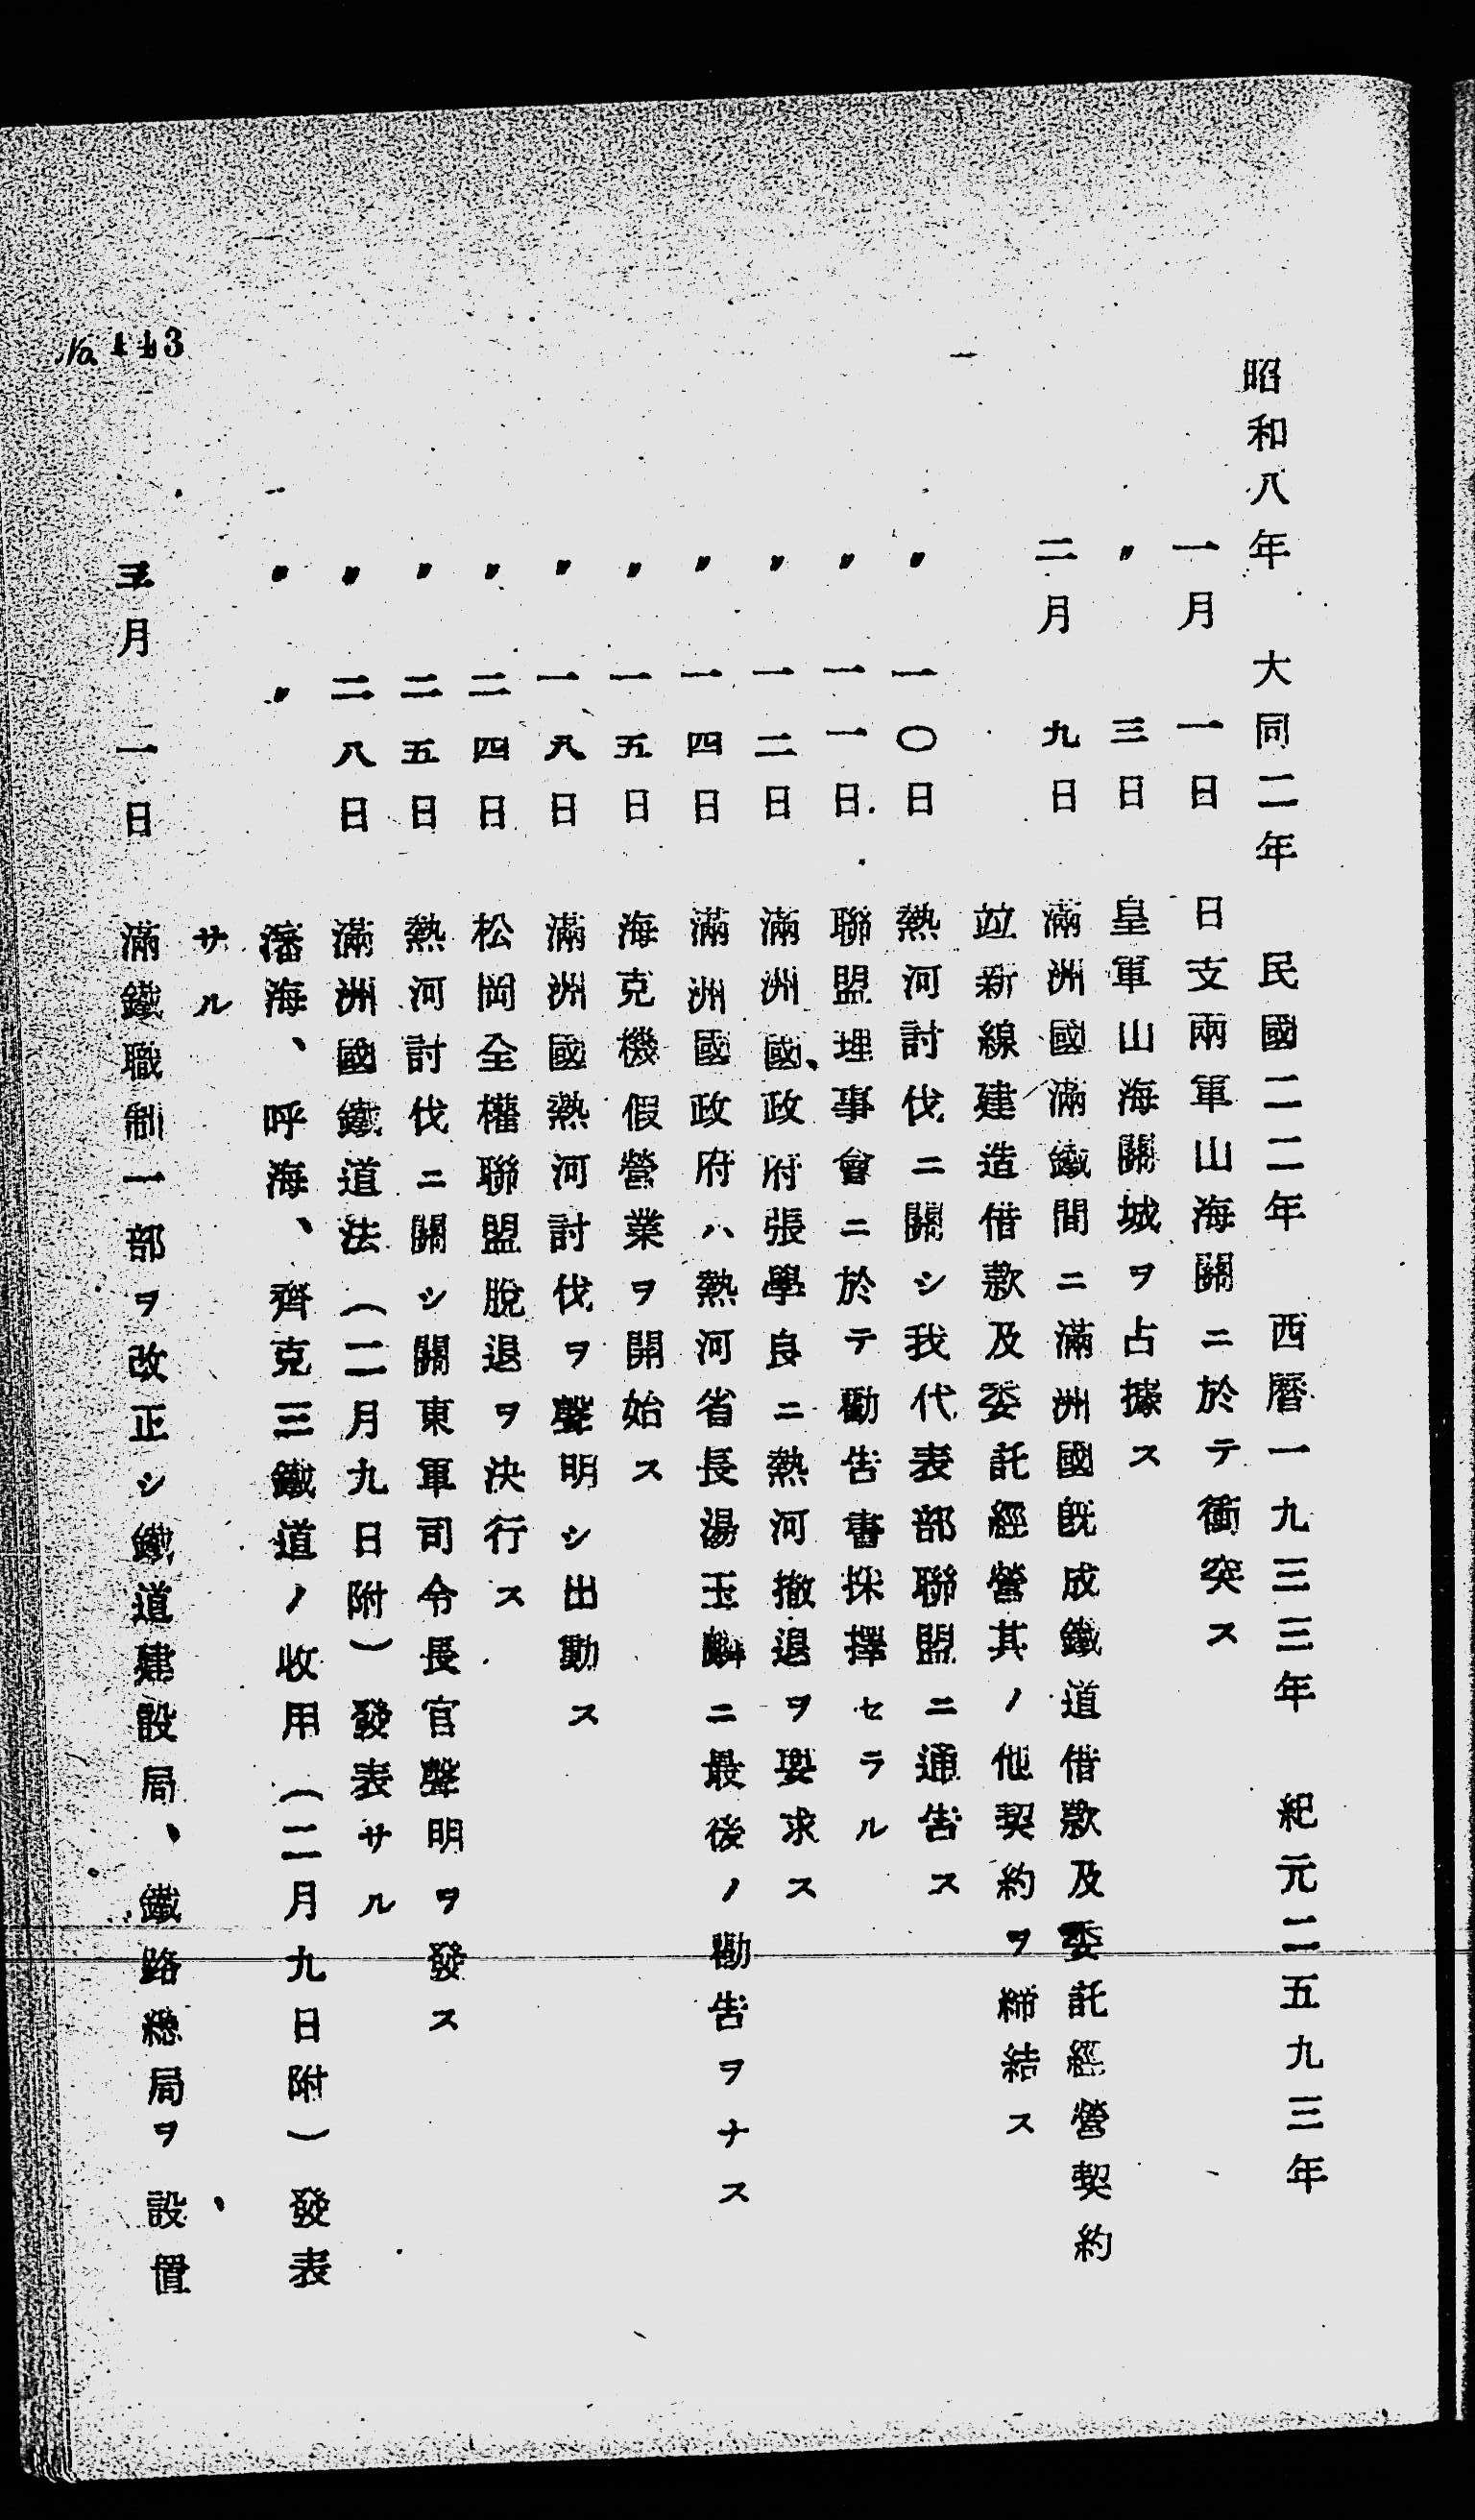 昭和八年 大同二年 民國二二年 西曆一九三三年 紀元二五九三年
一月 一日 日支兩軍山海關ニ於テ衝突ス
〃 三日 皇軍山海關城ヲ占據ス
二月 九日 滿洲國滿鐵間ニ滿洲國既成鐵道借款及委託經營契約
竝新線建造借款及委託經營其ノ他契約ヲ締結ス
〃 一〇日 熱河討伐ニ關シ我代表部聯盟ニ通吿ス
〃 一一日 聯盟理事會ニ於テ勸吿書採擇セラル
〃 一二日 滿洲國政府張學良ニ熱河撤退ヲ要求ス
〃 一四日 滿洲國政府ハ熱河省長湯玉麟ニ最後ノ勸吿ヲナス
〃 一五日 海克機假營業ヲ開始ス
〃 一八日 滿洲國熱河討伐ヲ聲明シ出動ス
〃 二四日 松岡全權聯盟脫退ヲ決行ス
〃 二五日 熱河討伐ニ關シ關東軍司令長官聲明ヲ發ス
〃 二八日 滿洲國鐵道法（二月九日附）發表サル
〃 〃 瀋海、呼海、齊克三鐵道ノ收用（二月九日附）發表
サル
三月 一日 滿鐵職制一部ヲ改正シ鐵道建設局、鐵路總局ヲ設置
No. 443